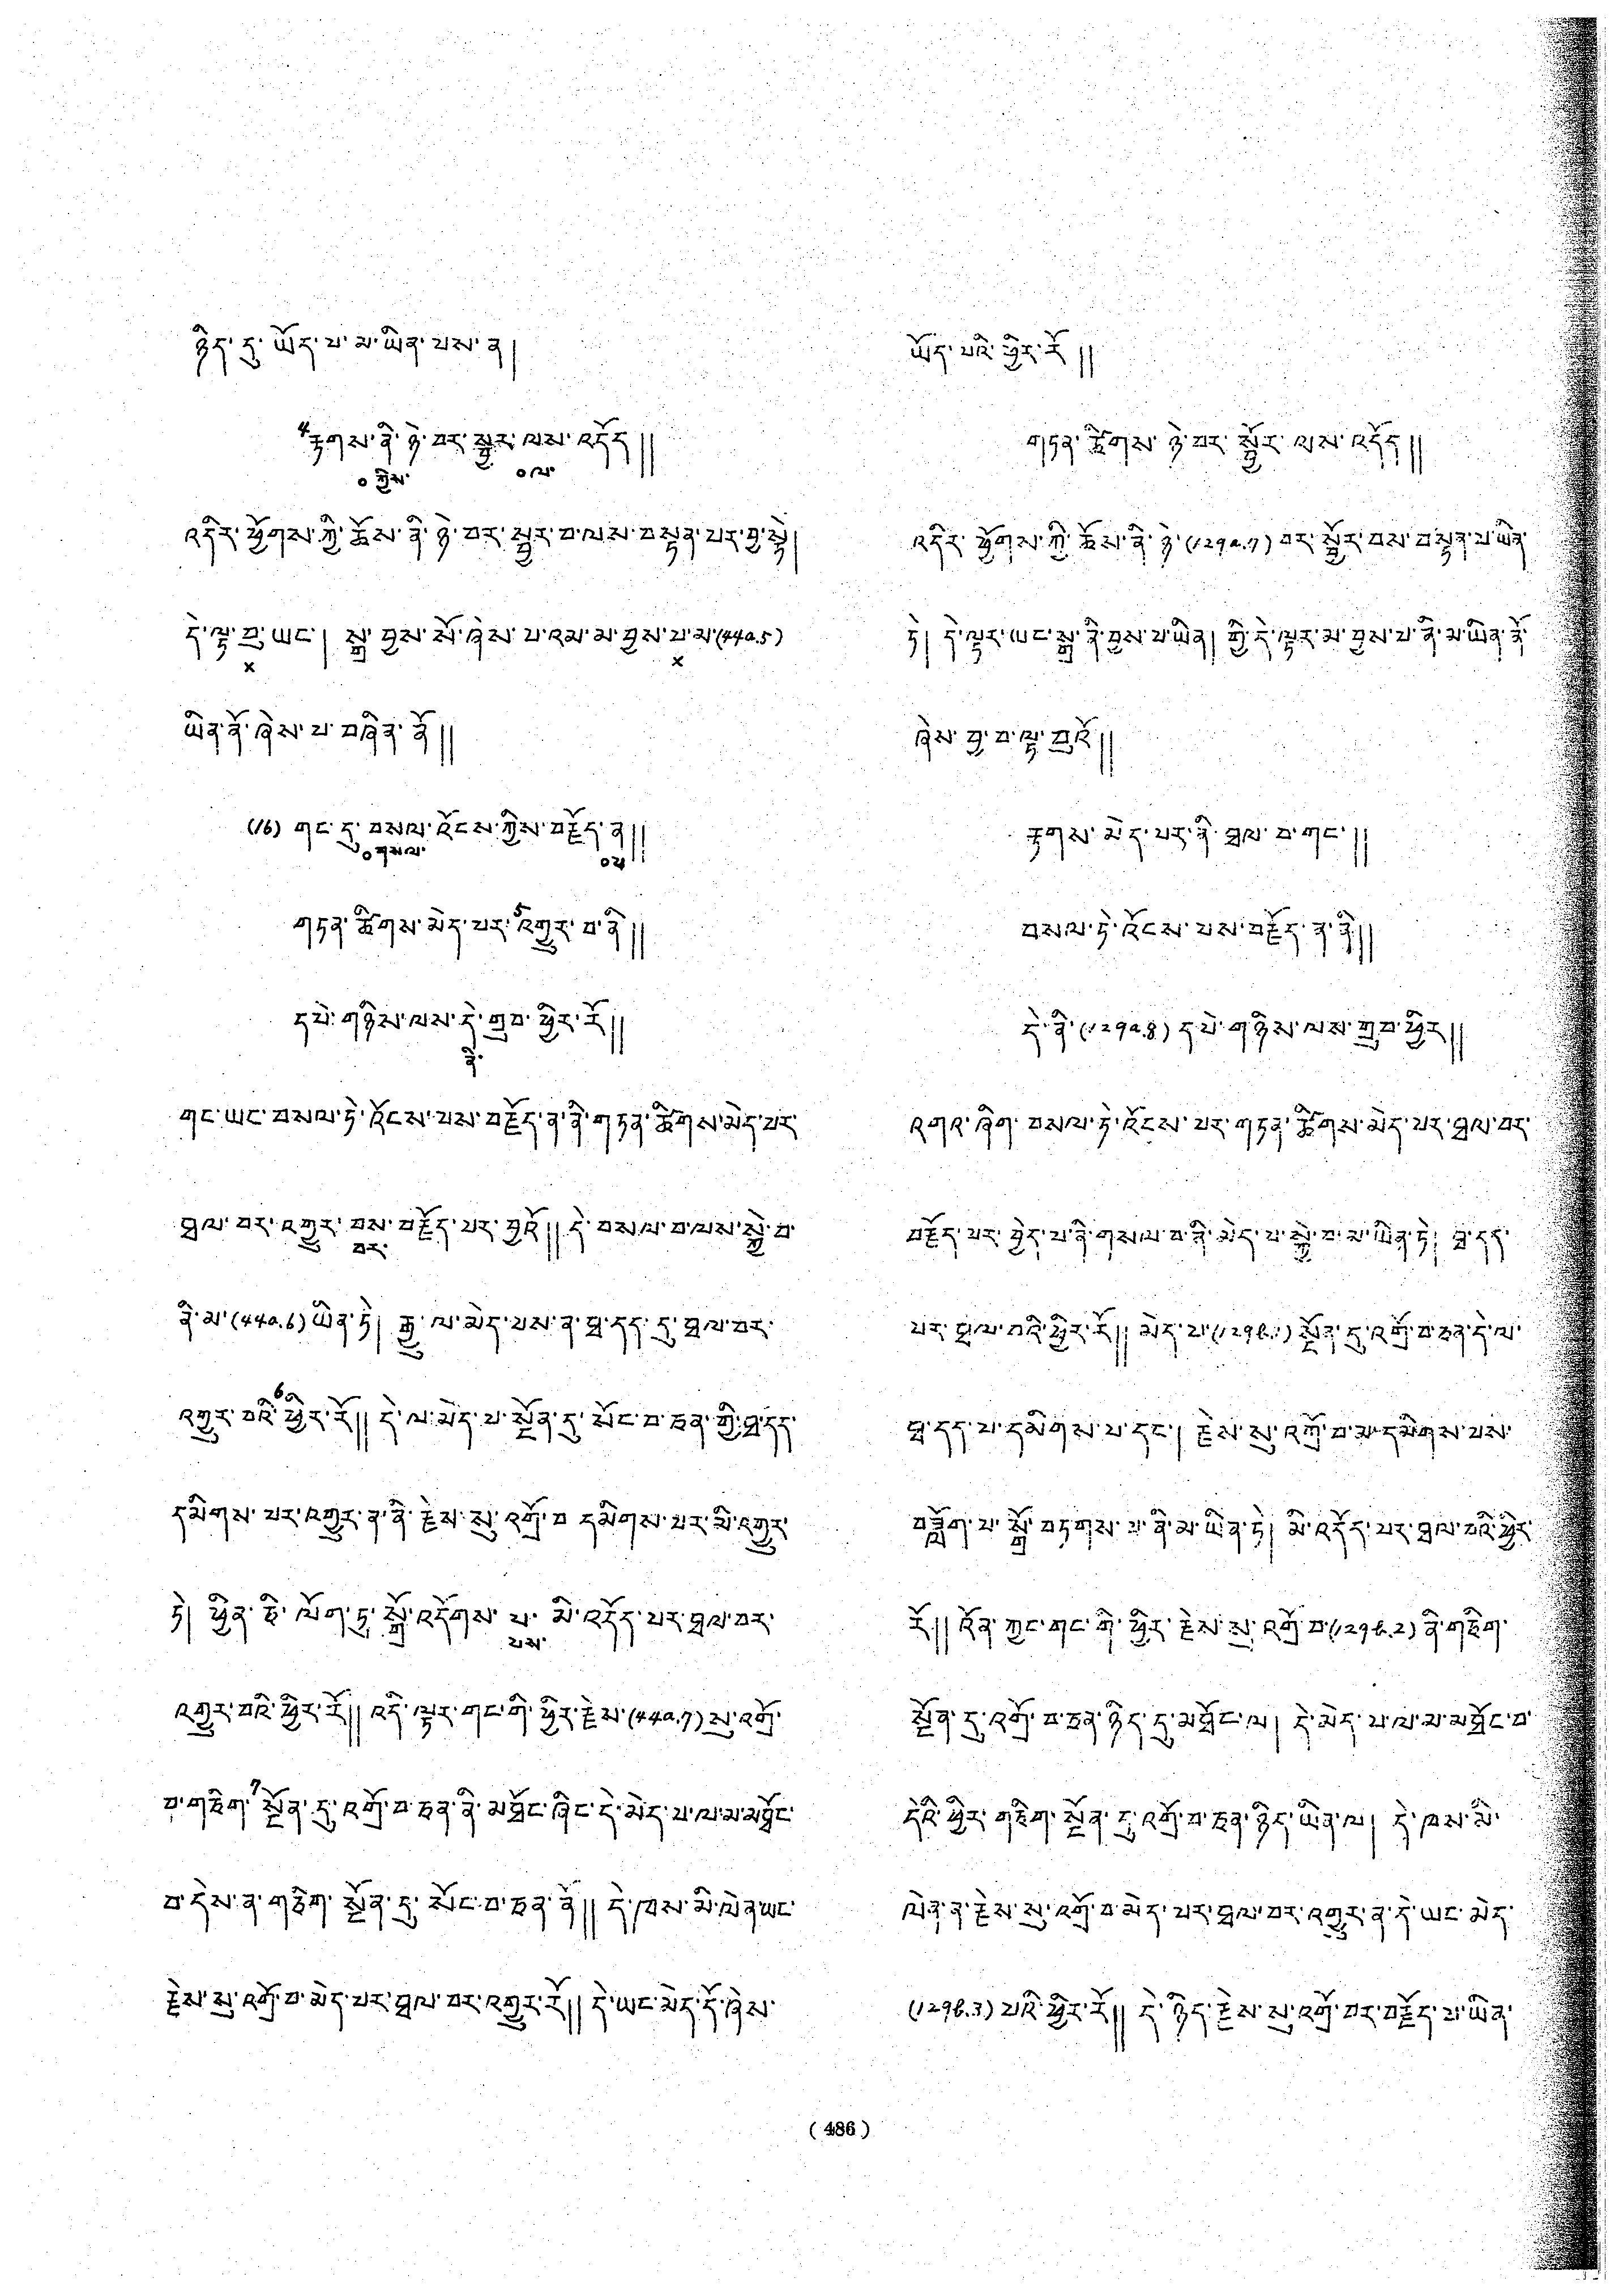 ཉིད་དུ་ཡོད་པ་མ་ཡིན་པས་ན།
4རྟགས་ནི་ཉེ་བར་སྦྱར་ལས་འདོད༎
०ཀྱིས་ ०ལ་
འདིར་ཕྱོགས་ཀྱི་ཆོས་ནི་ཉེ་བར་སྦྱར་བ་ལས་བསྟན་པར་བྱ་སྟེ།
དེ་ལྟ་བུ་ཡང་། སྒྲ་བྱས་སོ་ཞེས་པ་འམ་མ་བྱས་པ་མ་(44a.5)
× ×
ཡིན་ནོ་ཞེས་པ་བཞིན་ནོ༎
(16) གང་དུ་བསལ་འོངས་ཀྱིས་བརྗོད་ན༎
०གསལ་ ०པ
གཏན་ཚིགས་མེད་པར་5འགྱུར་བ་ནི༎
དཔེ་གཉིས་ལས་དེ་གྲུབ་ཕྱིར་རོ༎
ནི་
གང་ཡང་བསལ་ཏེ་འོངས་པས་བརྗོད་ན་ནི་གཏན་ཚིགས་མེད་པར་
ཐལ་བར་འགྱུར་བས་བརྗོད་པར་བྱའོ༎ དེ་བསལ་བ་ལས་སྐྱེ་བ་
བར་
ནི་མ་(44a.6)ཡིན་ཏེ། རྒྱུ་ལ་མེད་པས་ན་ཐ་དད་དུ་ཐལ་བར་
འགྱུར་བའི་6ཕྱིར་རོ༎ དེ་ལ་མེད་པ་སྔོན་དུ་སོང་བ་ཅན་གྱི་ཐ་དད་
དམིགས་པར་འགྱུར་ན་ནི་རྗེས་སུ་འགྲོ་བ་དམིགས་པར་མི་འགྱུར་
ཏེ། ཕྱིན་ཅི་ལོག་ཏུ་སྒྲོ་འདོགས་པ་ མི་འདོད་པར་ཐལ་བར་
པས་
འགྱུར་བའི་ཕྱིར་རོ༎ འདི་ལྟར་གང་གི་ཕྱིར་རྗེས་(44a.7)སུ་འགྲོ་
བ་གཅིག་7སྔོན་དུ་འགྲོ་བ་ཅན་ནི་མཐོང་ཞིང་དེ་མེད་པ་ལ་མ་མཐོང་
བ་དེས་ན་གཅིག་སྔོན་དུ་སོང་བ་ཅན་ནོ༎ དེ་ཁས་མི་ལེན་ཡང་
རྗེས་སུ་འགྲོ་བ་མེད་པར་ཐལ་བར་འགྱུར་རོ༎ དེ་ཡང་མེད་དོ་ཞེས་
ཡོད་པའི་ཕྱིར་རོ༎
གཏན་ཚིགས་ཉེ་བར་སྦྱོར་ལས་འདོད༎
འདིར་ཕྱོགས་ཀྱི་ཆོས་ནི་ཉེ་(129a.7)བར་སྦྱོར་བས་བསྟན་པ་ཡིན་
ཏེ། དེ་ལྟར་ཡང་སྒྲ་ནི་བྱས་པ་ཡིན། གྱི་དེ་ལྟར་མ་བྱས་པ་ནི་མ་ཡིན་ནོ་
ཞེས་བྱ་བ་ལྟ་བུའོ༎
རྟགས་མེད་པར་ནི་ཐལ་བ་གང་༎
བསལ་ཏེ་འོངས་པས་བརྗོད་ན་ནི༎
དེ་ནི་(129a.8)དཔེ་གཉིས་ལས་གྲུབ་ཕྱིར༎
འགའ་ཞིག་བསལ་ཏེ་འོངས་པར་གཏན་ཚིགས་མེད་པར་ཐལ་བར་
བརྗོད་པར་བྱེད་པ་ནི་གསལ་བ་ནི་མེད་པ་སྐྱེ་བ་མ་ཡིན་ཏེ། ཐ་དད་
པར་ཐལ་བའི་ཕྱིར་རོ༎ མེད་པ་(129b.1)སྔོན་དུ་འགྲོ་བ་ཅན་དེ་ལ་
ཐ་དད་པ་དམིགས་པ་དང་། རྗེས་སུ་འགྲོ་བ་མ་དམིགས་པས་
བཟློག་པ་སྒྲོ་བཏགས་པ་ནི་མ་ཡིན་ཏེ། མི་འདོད་པར་ཐལ་བའི་ཕྱིར་
རོ༎ འོན་ཀྱང་གང་གི་ཕྱིར་རྗེས་སུ་འགྲོ་བ་(129b.2)ནི་གཅིག་
སྔོན་དུ་འགྲོ་བ་ཅན་ཉིད་དུ་མཐོང་ལ། དེ་མེད་པ་ལ་མ་མཐོང་བ་
དེའི་ཕྱིར་གཅིག་སྔོན་དུ་འགྲོ་བ་ཅན་ཉིད་ཡིན་ལ། དེ་ཁས་མི་
ལེན་ན་རྗེས་སུ་འགྲོ་བ་མེད་པར་ཐལ་བར་འགྱུར་ན་དེ་ཡང་མེད་
(129b.3)པའི་ཕྱིར་རོ༎ དེ་ཉིད་རྗེས་སུ་འགྲོ་བར་བརྗོད་པ་ཡིན་
( 486 )